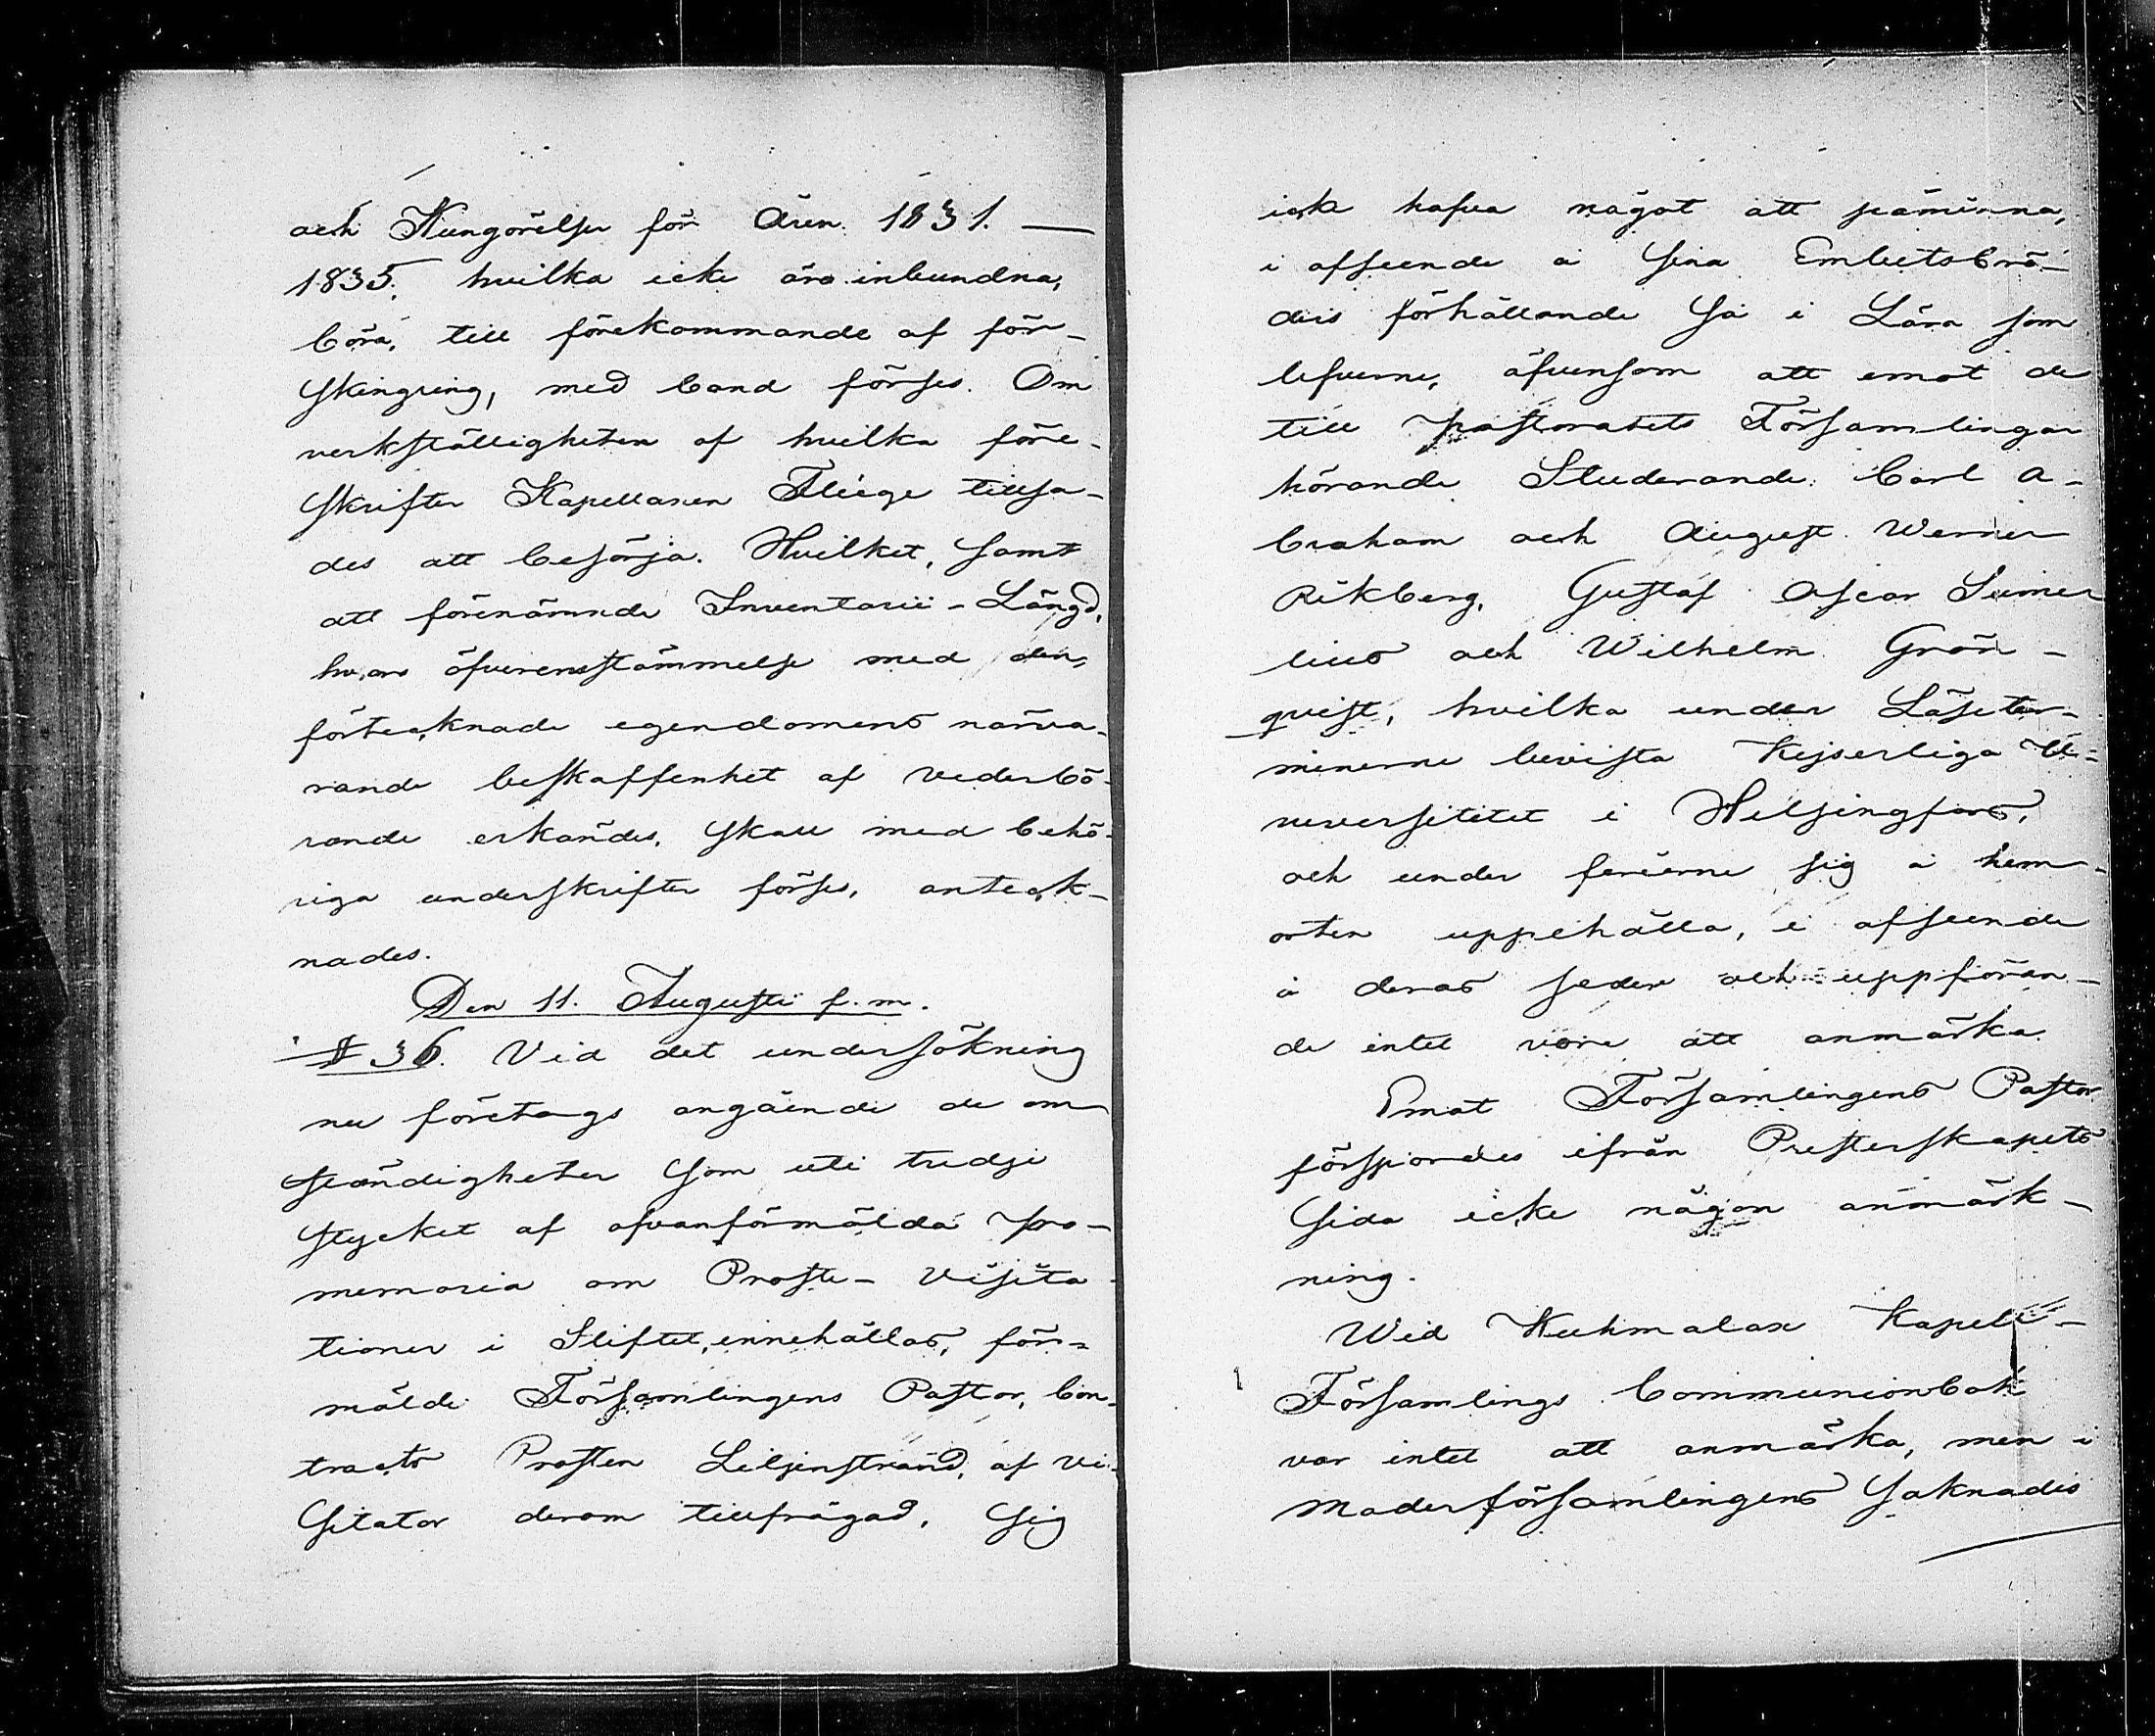 och Kungörelser för Åren 1831. —
1835, hvilka icke äro inbundna,
böra, till förekommande af för-
skingring, med band förses. Om
verkställigheten af hvilka före-
skrifter Kapellanen Fliege tillsa-
des att besörja. Hvilket, samt
att förenämnde Inventarii-Längd,
hvars öfverensstämmelse med den
förtecknade egendomens närva-
rande beskaffenhet af vederbö-
rande erkändes, skall med behö-
riga underskrifter förses, anteck-
nades.
Den 11. Augusti f.m.
§ 36. Vid det undersökning
nu företogs angående de om-
ständigheter som uti tredje
stycket af ofvanförmälda pro-
memoria om Proste-Visita-
tioner i Stiftet, innehållas, för-
mälde Församlingens Pastor, Con-
tracts Prosten Liljenstrand, af Vi-
sitator derom tillfrågad, sig
icke hafva något att påminna,
i afseende å sina Embetsbrö-
ders förhållande så i Lära som
lefverne, äfvensom att emot de
till pastoratets Församlingar
hörande Studerande Carl A-
braham och August Werner
Rikberg, Gustaf Oscar Sumer
lius och Wilhelm Grön-
qvist, hvilka under Läseter-
minerne bevista Kejserliga U-
niversitetet i Helsingfors,
och under ferierne sig å hem-
orten uppehålla, i afseende
å deras seder och uppföran-
de intet vore att anmärka.
Emot Församlingens Pastor
försportdes ifrån Presterskapets
sida icke någon anmärk-
ning.
Wid Kuhmalax Kapell-
Församlings Communionbok
var intet att anmärka, men i
Moderförsamlingens saknades